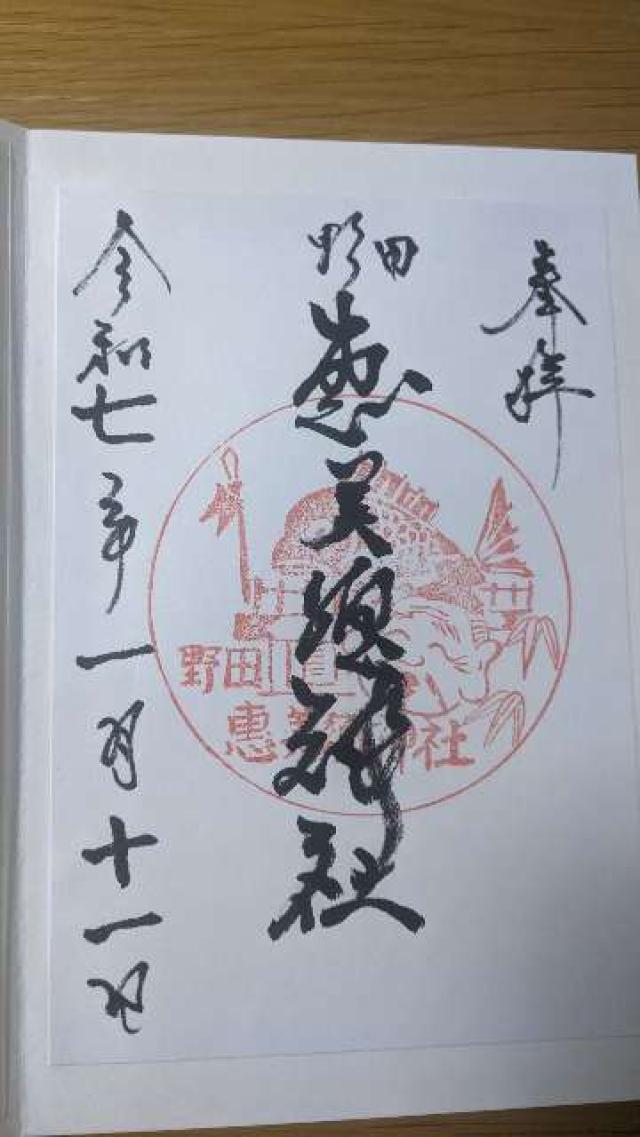 奉拝
野田
恵美須神社
令和七年一月十一日
野田
恵美須神社